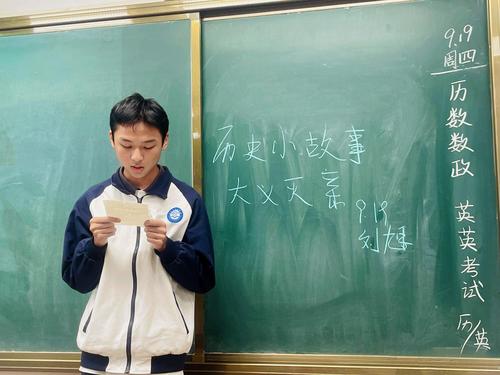 历史小故事
大义灭亲
9.19
刘
9.19
周四
历数数政
英英考试
历/英